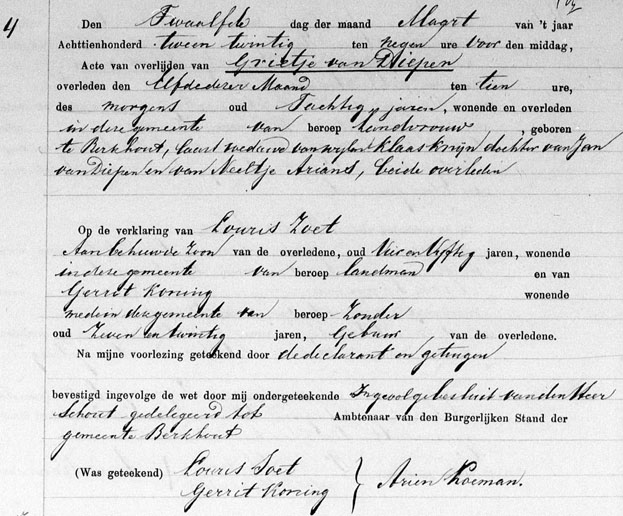 4
Den Twaalfde dag der maand Maart van 't jaar
Achttienhonderd tween twintig ten negen ure voor den middag,
Acte van overlijden van Grietje van Diepen
overleden den Elfdedezer Maand ten tien ure,
des morgens oud Tachtig jaren, wonende en overleden
in deze gemeente van beroep Landvrouw, geboren
te Berkhout, laast weduwe van wylen Klaas Knijn dochter van Jan
van Diepen en van Neeltje Arians, beide overleden
Op de verklaring van Louris Zoet
Aanbehuwde Zoon van de overledene, oud Vier en Vyftig jaren, wonende
in deze gemeente van beroep landman en van
Gerrit Koning wonende
mede in deze gemeente van beroep Zonder
oud Zeven en twintig jaren, Gebuur van de overledene.
Na mijne voorlezing geteekend door de declarant en getuigen
bevestigd ingevolge de wet door mij ondergeteekende Ingevolge besluit van den Heer
Schout gedelegeerd tot Ambtenaar van den Burgerlijken Stand der
gemeente Berkhout
(Was geteekend) Louris Soet
Gerrit Koning } Arien Koeman.